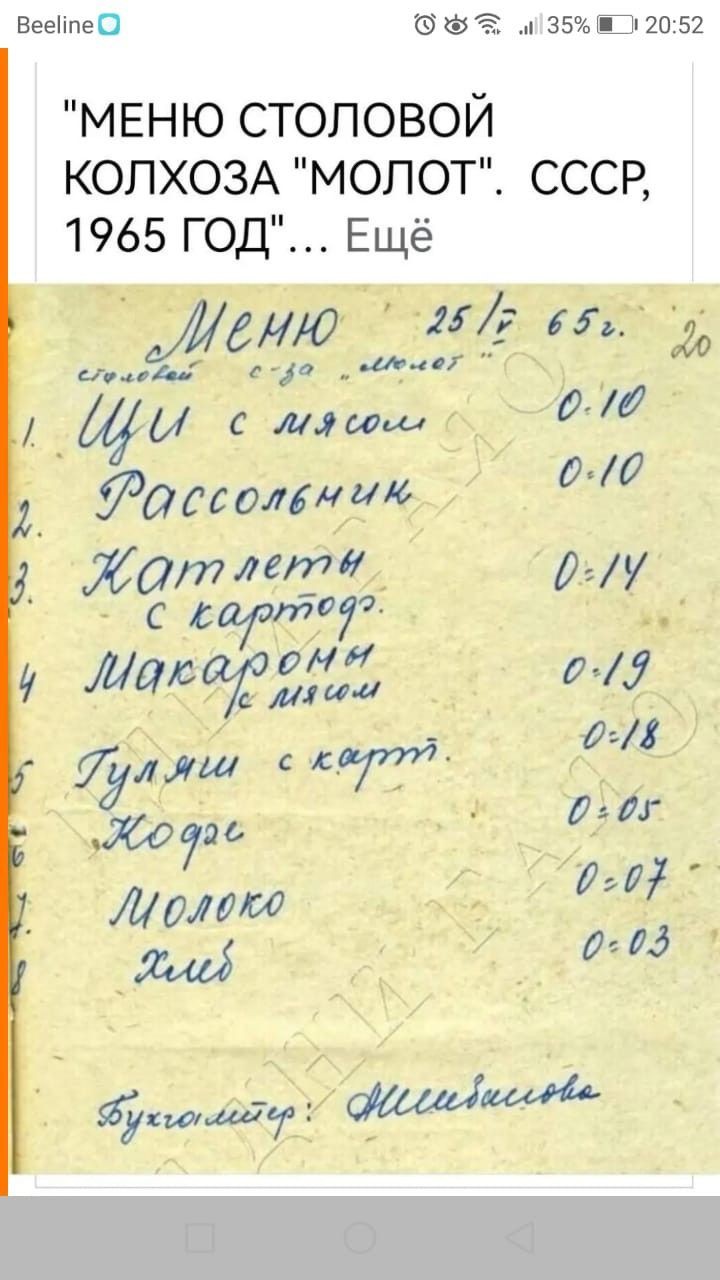 Beeline 35% 20:52
"МЕНЮ СТОЛОВОЙ
КОЛХОЗА "МОЛОТ". СССР,
1965 ГОД"... Ещё
Меню 25/V 65г. 20
столовой с-за „Молот"
1. Щи с мясом 0=10
2. Рассольник 0=10
3. Катлеты 0=14
с картоф.
4 Макароны 0=19
с мясом
5 Гуляш с карт. 0=18
6 Кофе 0=05
7. Молоко 0=07
8 Хлеб 0=03
Бухгалтер: